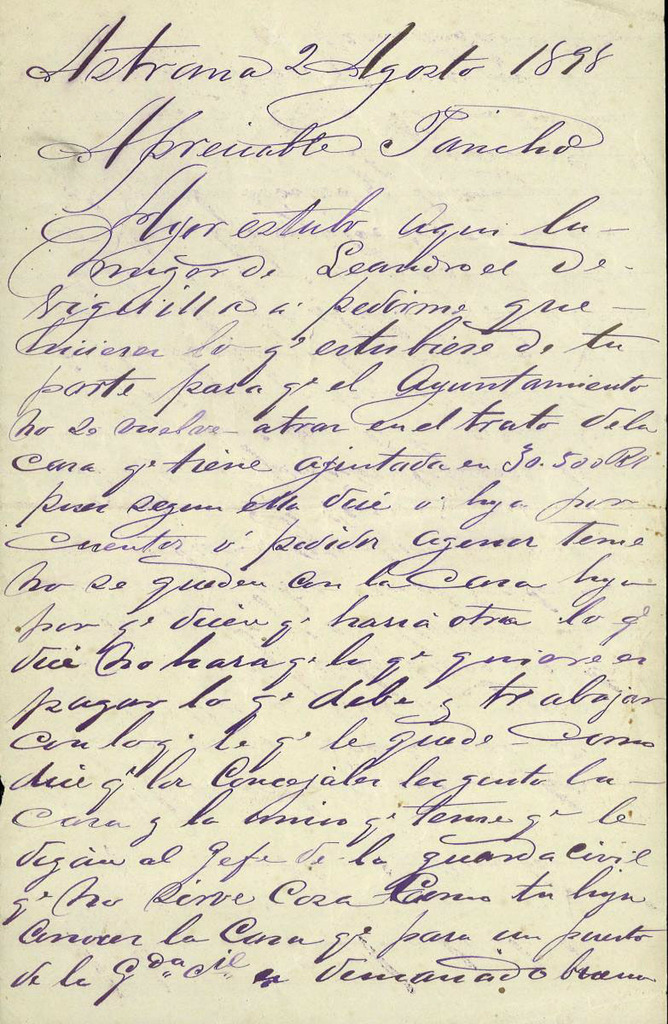 Astrana 2 Agosto 1898
Apreciable Pancho
Ayer estubo aqui la
muger de Leandro el de
a pedirme que
hiciera lo q.e estubiese de tu
parte para q.e el Ayuntamiento
no se vuelve atras en el trato dela
casa q.e tiene ajustada en 30.500 Rs
pues segun ella dice ó hija por
cuentos ó pedidos agenos teme
no se queden con la Casa hija
por q.e dicen q.e hará otra lo q.e
dice no hara q.e lo q.e quiere es
pagar lo q.e debe y trabajar
con lo q.e le q.e le quede como
dice q.e los Concejales les gusta la
Casa y lo unico q.e teme q.e le
digan al Gefe de la guardia civil
q.e no sirve Cosa Como tu hija
conoces la Casa q.e para un puesto
de la G.da C.il es demasiado buena